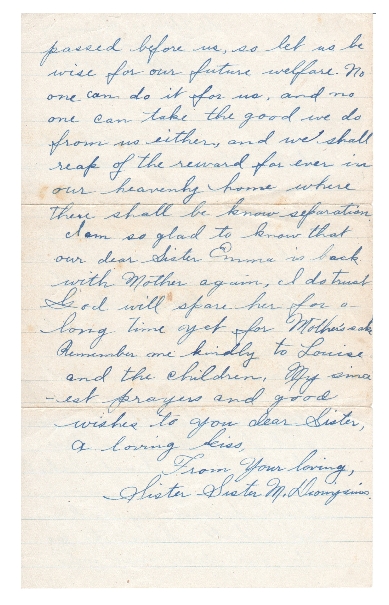 passed before us, so let us be
wise for our future welfare. No
one can do it for us, and no
one can take the good we do
from us either, and we shall
reap of the reward for ever in
our heavenly home where
there shall be know separation.
I am so glad to know that
our dear Sister Emma is back
with Mother again, I do trust
God will spare her for a
long time yet for Mother's sake
Remember me kindly to Louise
and the children. My since
-est prayers and good
wishes to you dear Sister,
a loving kiss,
From Your loving,
Sister Sister M.